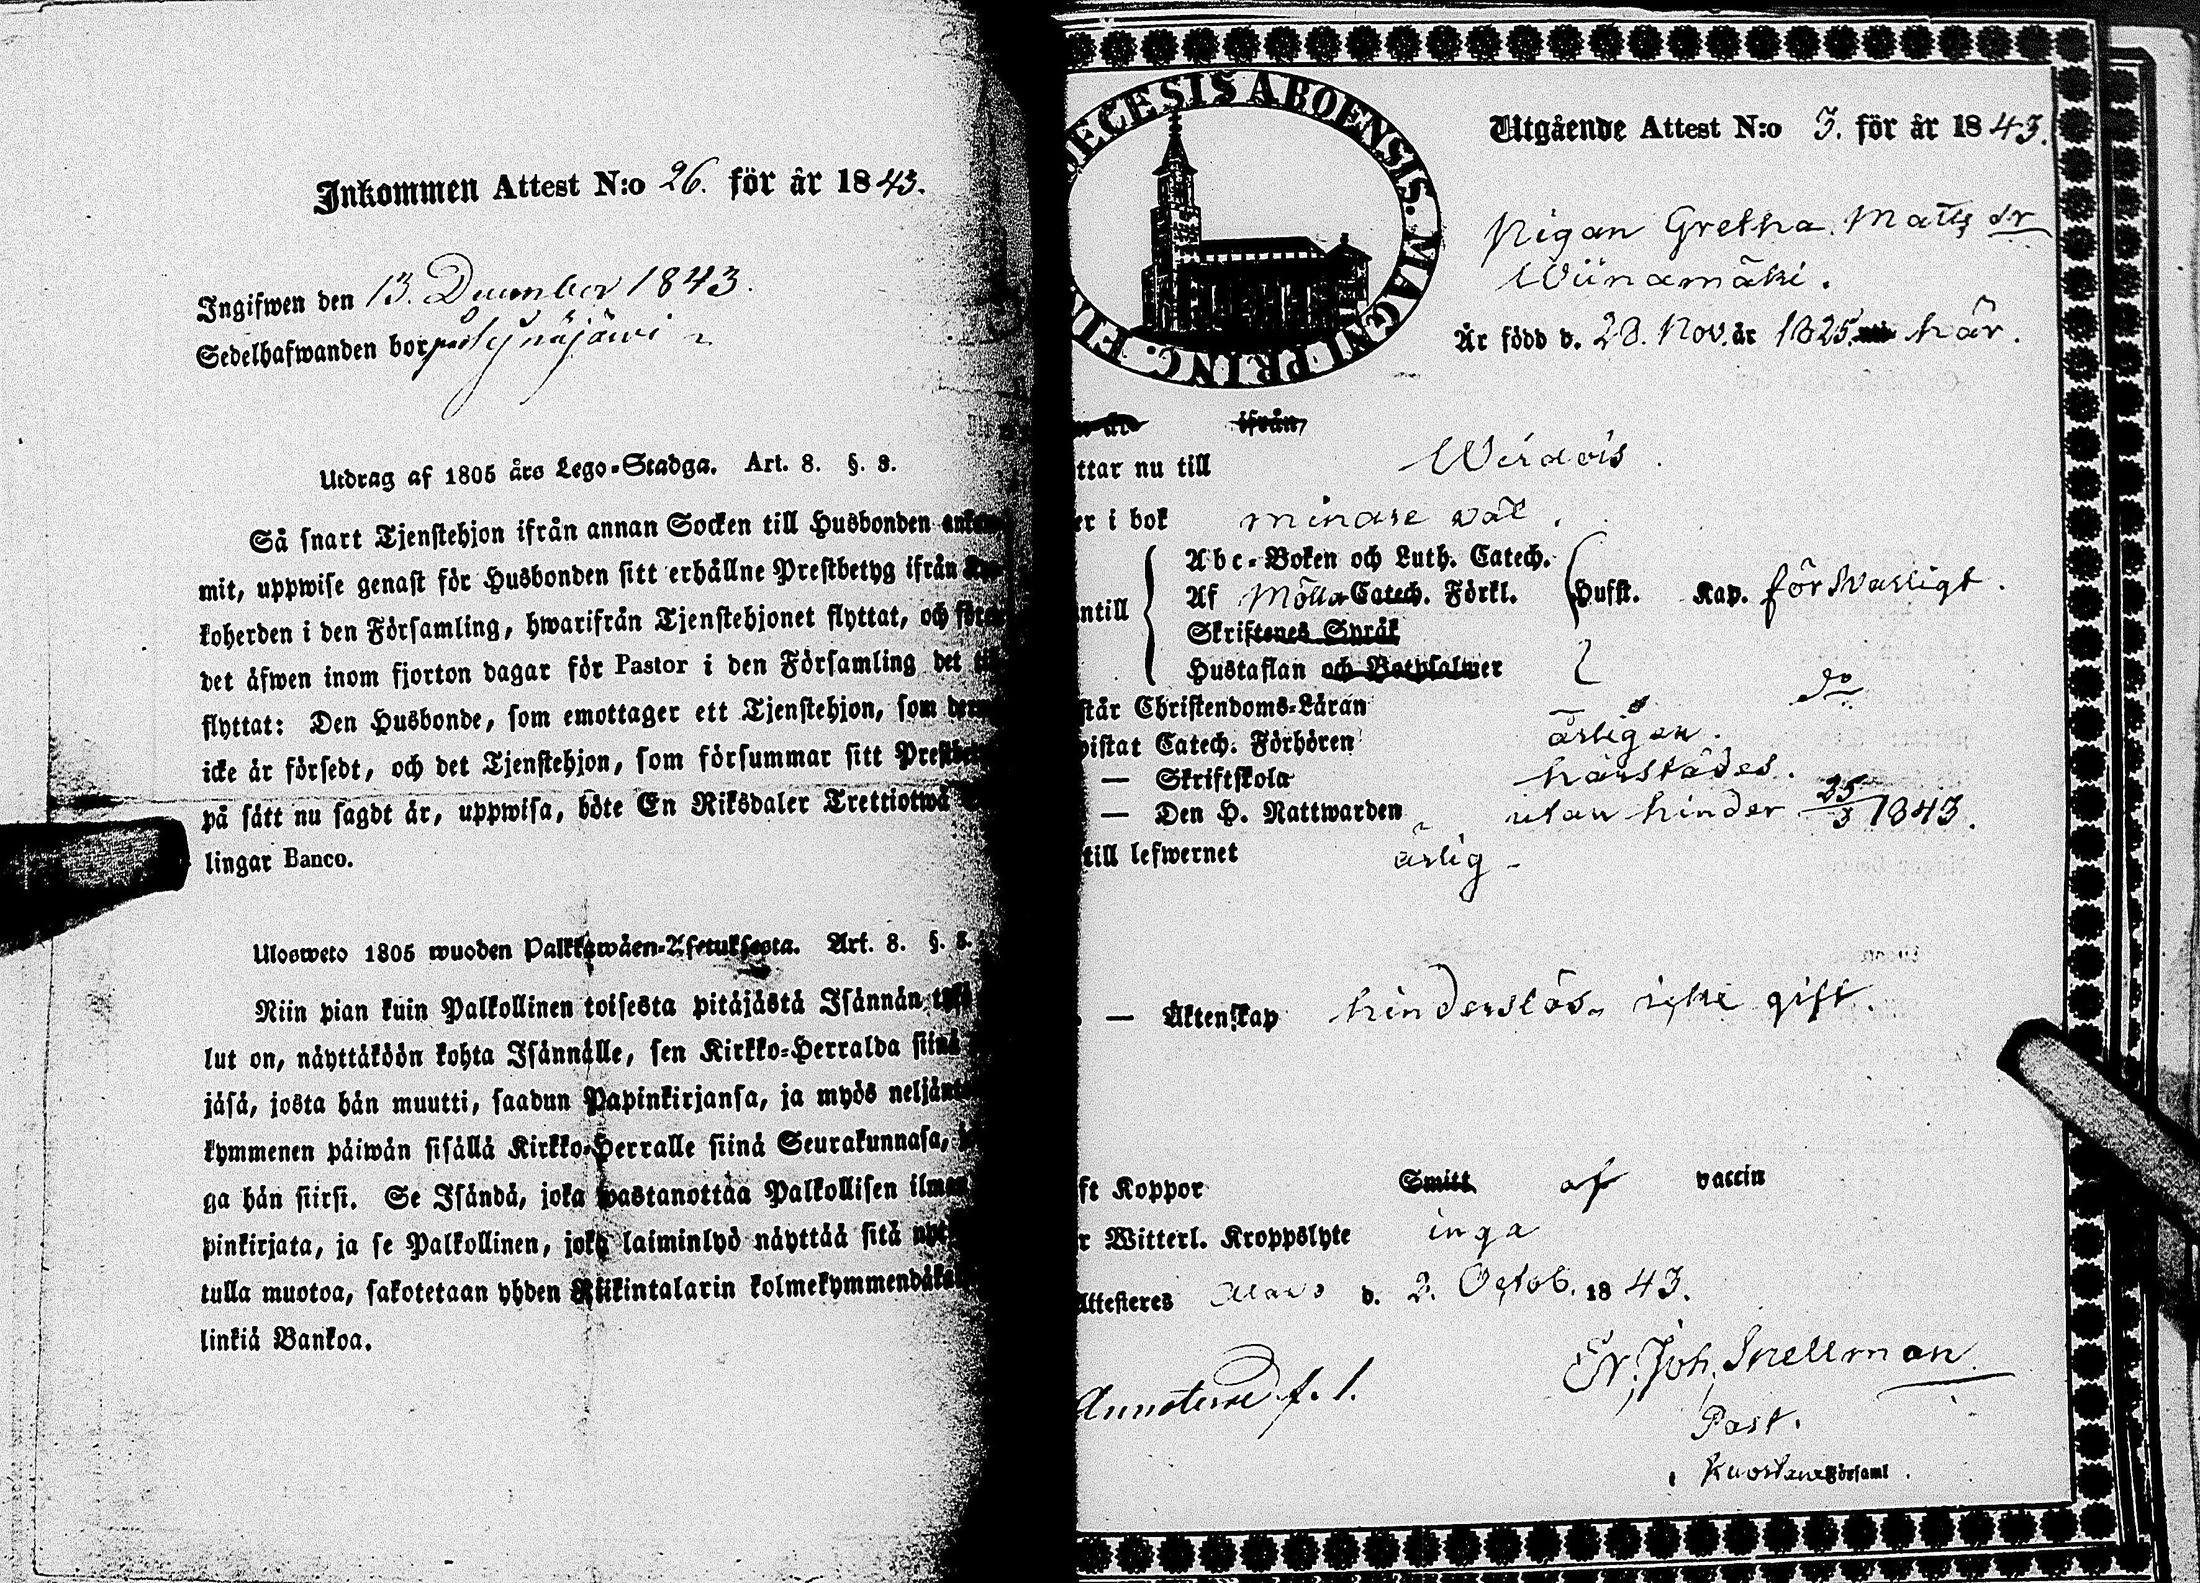 Inkommen Attest N:o 26. för år 1843.
Ingifwen den 13. December 1843.
Sedelhafwanden bor på
Utdrag af 1805 års Lego-Stadga. Art. 8. §. 8.
Så snart Tjenstehjon ifrån annan Socken till Husbonden ankom-
mit, uppwise genast för Husbonden sitt erhållne Prestbetyg ifrån
koherden i den Församling, hwarifrån Tjenstehjonet flyttat, och
det äfwen inom fjorton dagar för Pastor i den Församling det
flyttat: Den Husbonde, som emottager ett Tjenstehjon, som
icke är försedt, och det Tjenstehjon, som försummar sitt
på sätt nu sagdt är, uppwisa, böte En Riksdaler Trettiotwå
lingar Banco.
Ulosweto 1805 wuoden Palkkawäen-Asetuksesta. Art. 8. §. 8.
Niin pian kuin Palkollinen toisesta pitäjästä Isännän
lut on, näyttäköön kohta Isännälle, sen Kirkko-Herralda siinä
jäsä, josta hän muutti, saadun Papinkirjansa, ja myös
kymmenen päiwän sisällä Kirkko-Herralle siinä Seurakunnasa,
ga hän siirsi. Se Isändä, joka wastanottaa Palkollisen
pinkirjata, ja se Palkollinen, joka laiminlyö näyttää sitä
tulla muotoa, sakotetaan yhden Riikintalarin
linkiä Bankoa.
DECESIS ABOENSIS. MAGNI PRINC. FIN
Utgående Attest N:o 3. för år 1843.
Pigan Gretha Matts dr
Wiinamäki.
Är född d. 28. Nov. år 1825 här.
ifrån
ttar nu till Wirdois.
er i bok mindre väl.
Abc-Boken och Luth. Catech.
Af Möllers Catech. Förkl. Hufst. Kap. försvarligt.
ntill
Skriftenes Språk
Hustaflan och Botpsalmer
står Christendoms-Läran do
wistat Catech. Förhören årligen.
— Skriftskola härstädes.
— Den H. Nattwarden utan hinder 25/3 1843.
till lefwernet ärlig
— Äktenskap hinderslös, icke gift.
ft Koppor Smitt af vaccin
r Witterl. Kroppslyte inga
Attesteres Alavo d. 2. Octob. 1843.
Er. Joh. Snellman
Annoterad f. 1.
Past.
Kuortane Församl.